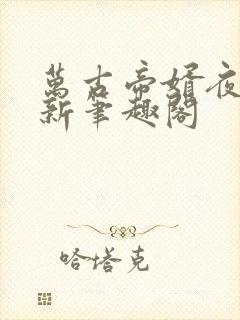 萬古帝婿夜
新筆趣閣
哈塔克